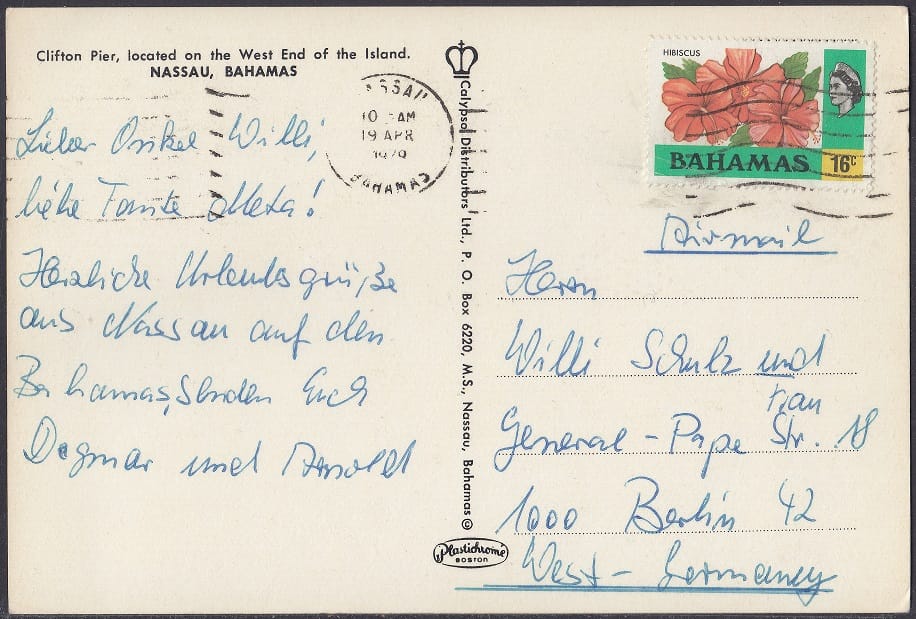 Clifton Pier, located on the West End of the Island.
NASSAU, BAHAMAS
Lieber Onkel Willi,
liebe Tante Meta!
Herzliche Urlaubsgrüße
aus Nassau auf den
Bahamas, senden Euch
Dagmar und Arnold
NASSAU
10 AM
19 APR
BAHAMAS
Calypso Distributors Ltd., P. O. Box 6220, M.S., Nassau, Bahamas ©
Plastichrome
BOSTON
HIBISCUS
BAHAMAS 16c
Airmail
Herrn
Willi Schulz und
Frau
General-Pape Str. 18
1000 Berlin 42
West-Germany